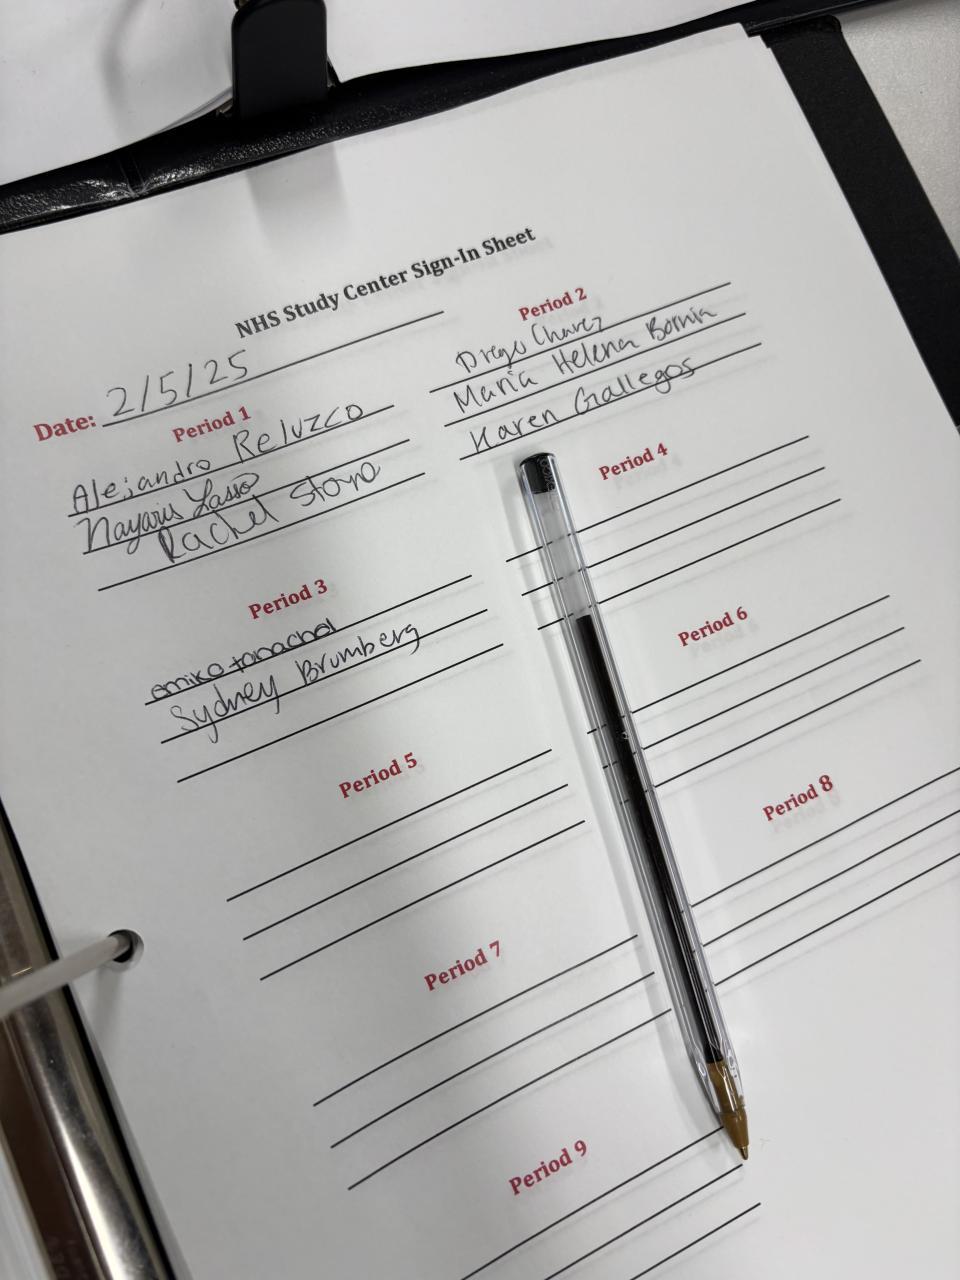 NHS Study Center Sign-In Sheet
Date: 2/5/25
Period 1
Alejandro Reluzco
Nayaris Lasso
Rachel Stone
Period 2
Diego Chavez
Maria Helena Bornia
Karen Gallegos
Period 3
emiko
Sydney Brumberg
Period 4
Period 5
Period 6
Period 7
Period 8
Period 9